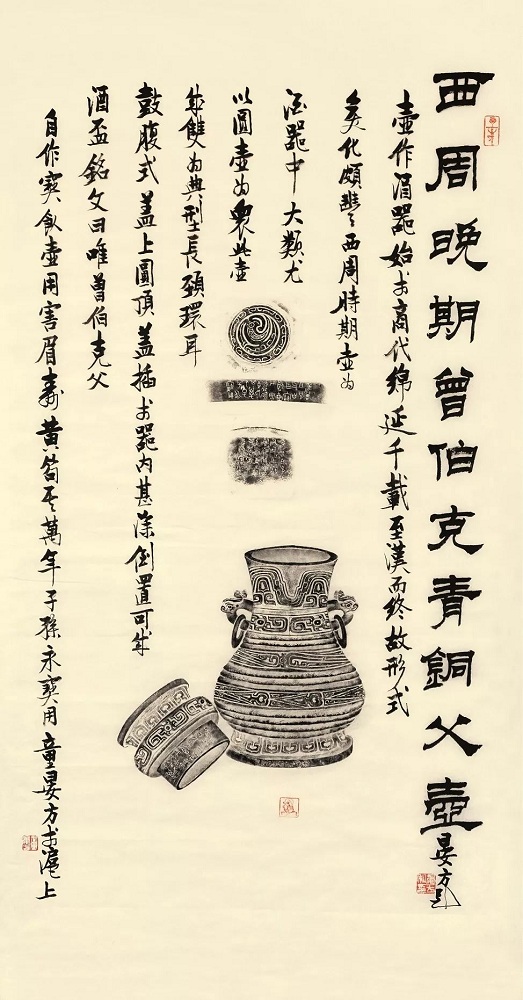 西周晚期曾伯克青銅父壺
晏方題
壺作酒器始於商代綿延千載至漢而終故形式
多變化頗豐西周時期壺為
酒器中大類尤
以圓壺為眾此壺
成雙為典型長頸環耳
鼓腹式蓋上圓頂蓋插於器內甚深倒置可成
酒盃銘文曰唯曾伯克父
自作寶飲壺用害眉壽黃耇其萬年子孫永寶用童晏方於滬上